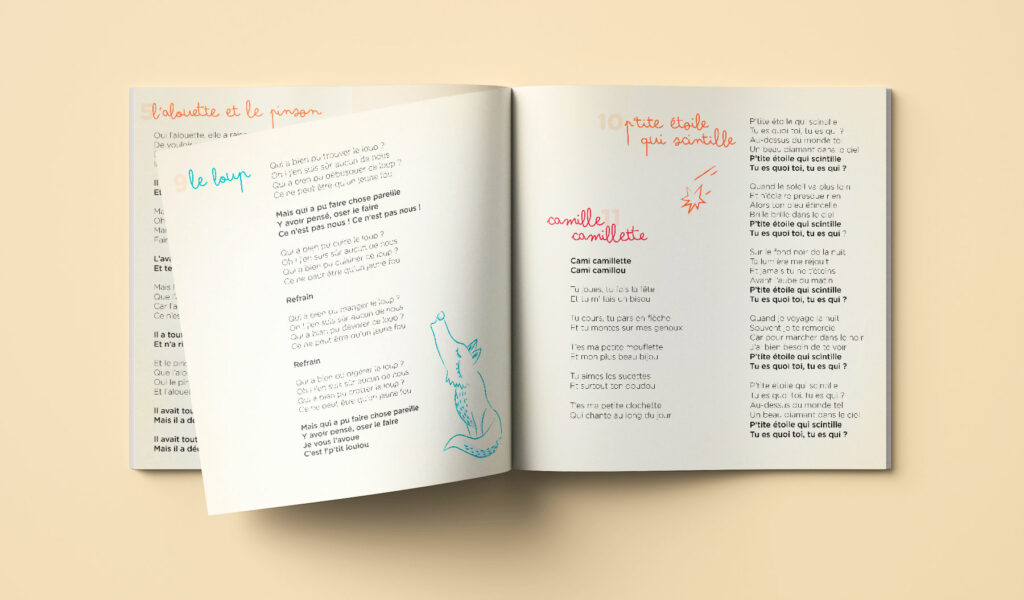 5
l'alouette et le pinson
Oui l'alouette, elle a
De
Il
Et
Ma
Oh
Mai
Fair
L'av
Et te
Mais l
Que l'a
Car l'a
Ce n'es
Il a tou
Et n'a ri
Et le pin
Que l'alo
Oui le pin
Et l'aloue
Il avait tout
Mais il a dé
Il avait tout
Mais il a déc
9
le loup
Qui a bien pu trouver le loup ?
Oh ! j'en suis sûr aucun de nous
Qui a bien pu débusquer ce loup ?
Ce ne peut être qu'un jeune fou
Mais qui a pu faire chose pareille
Y avoir pensé, oser le faire
Ce n'est pas nous ! Ce n'est pas nous !
Qui a bien pu cuire le loup ?
Oh ! j'en suis sûr aucun de nous
Qui a bien pu cuisiner ce loup ?
Ce ne peut être qu'un jeune fou
Refrain
Qui a bien pu manger le loup ?
Oh ! j'en suis sûr aucun de nous
Qui a bien pu dévorer ce loup ?
Ce ne peut être qu'un jeune fou
Refrain
Qui a bien pu digérer le loup ?
Oh ! j'en suis sûr aucun de nous
Qui a bien pu crotter le loup ?
Ce ne peut être qu'un jeune fou
Mais qui a pu faire chose pareille
Y avoir pensé, oser le faire
Je vous l'avoue
C'est l'p'tit loulou
10
p'tite étoile
qui scintille
11
camille
camillette
Cami camillette
Cami camillou
Tu joues, tu fais la fête
Et tu m'fais un bisou
Tu cours, tu pars en flèche
Et tu montes sur mes genoux
T'es ma petite mouflette
Et mon plus beau bijou
Tu aimes les sucettes
Et surtout ton doudou
T'es ma petite clochette
Qui chante au long du jour
P'tite étoile qui scintille
Tu es quoi toi, tu es qui ?
Au-dessus du monde tel
Un beau diamant dans le ciel
P'tite étoile qui scintille
Tu es quoi toi, tu es qui ?
Quand le soleil va plus loin
Et n'éclaire presque rien
Alors ton bleu étincelle
Brille brille dans le ciel
P'tite étoile qui scintille
Tu es quoi toi, tu es qui ?
Sur le fond noir de la nuit
Ta lumière me réjouit
Et jamais tu ne t'éteins
Avant l'aube du matin
P'tite étoile qui scintille
Tu es quoi toi, tu es qui ?
Quand je voyage la nuit
Souvent je te remercie
Car pour marcher dans le noir
J'ai bien besoin de te voir
P'tite étoile qui scintille
Tu es quoi toi, tu es qui ?
P'tite étoile qui scintille
Tu es quoi toi, tu es qui ?
Au-dessus du monde tel
Un beau diamant dans le ciel
P'tite étoile qui scintille
Tu es quoi toi, tu es qui ?